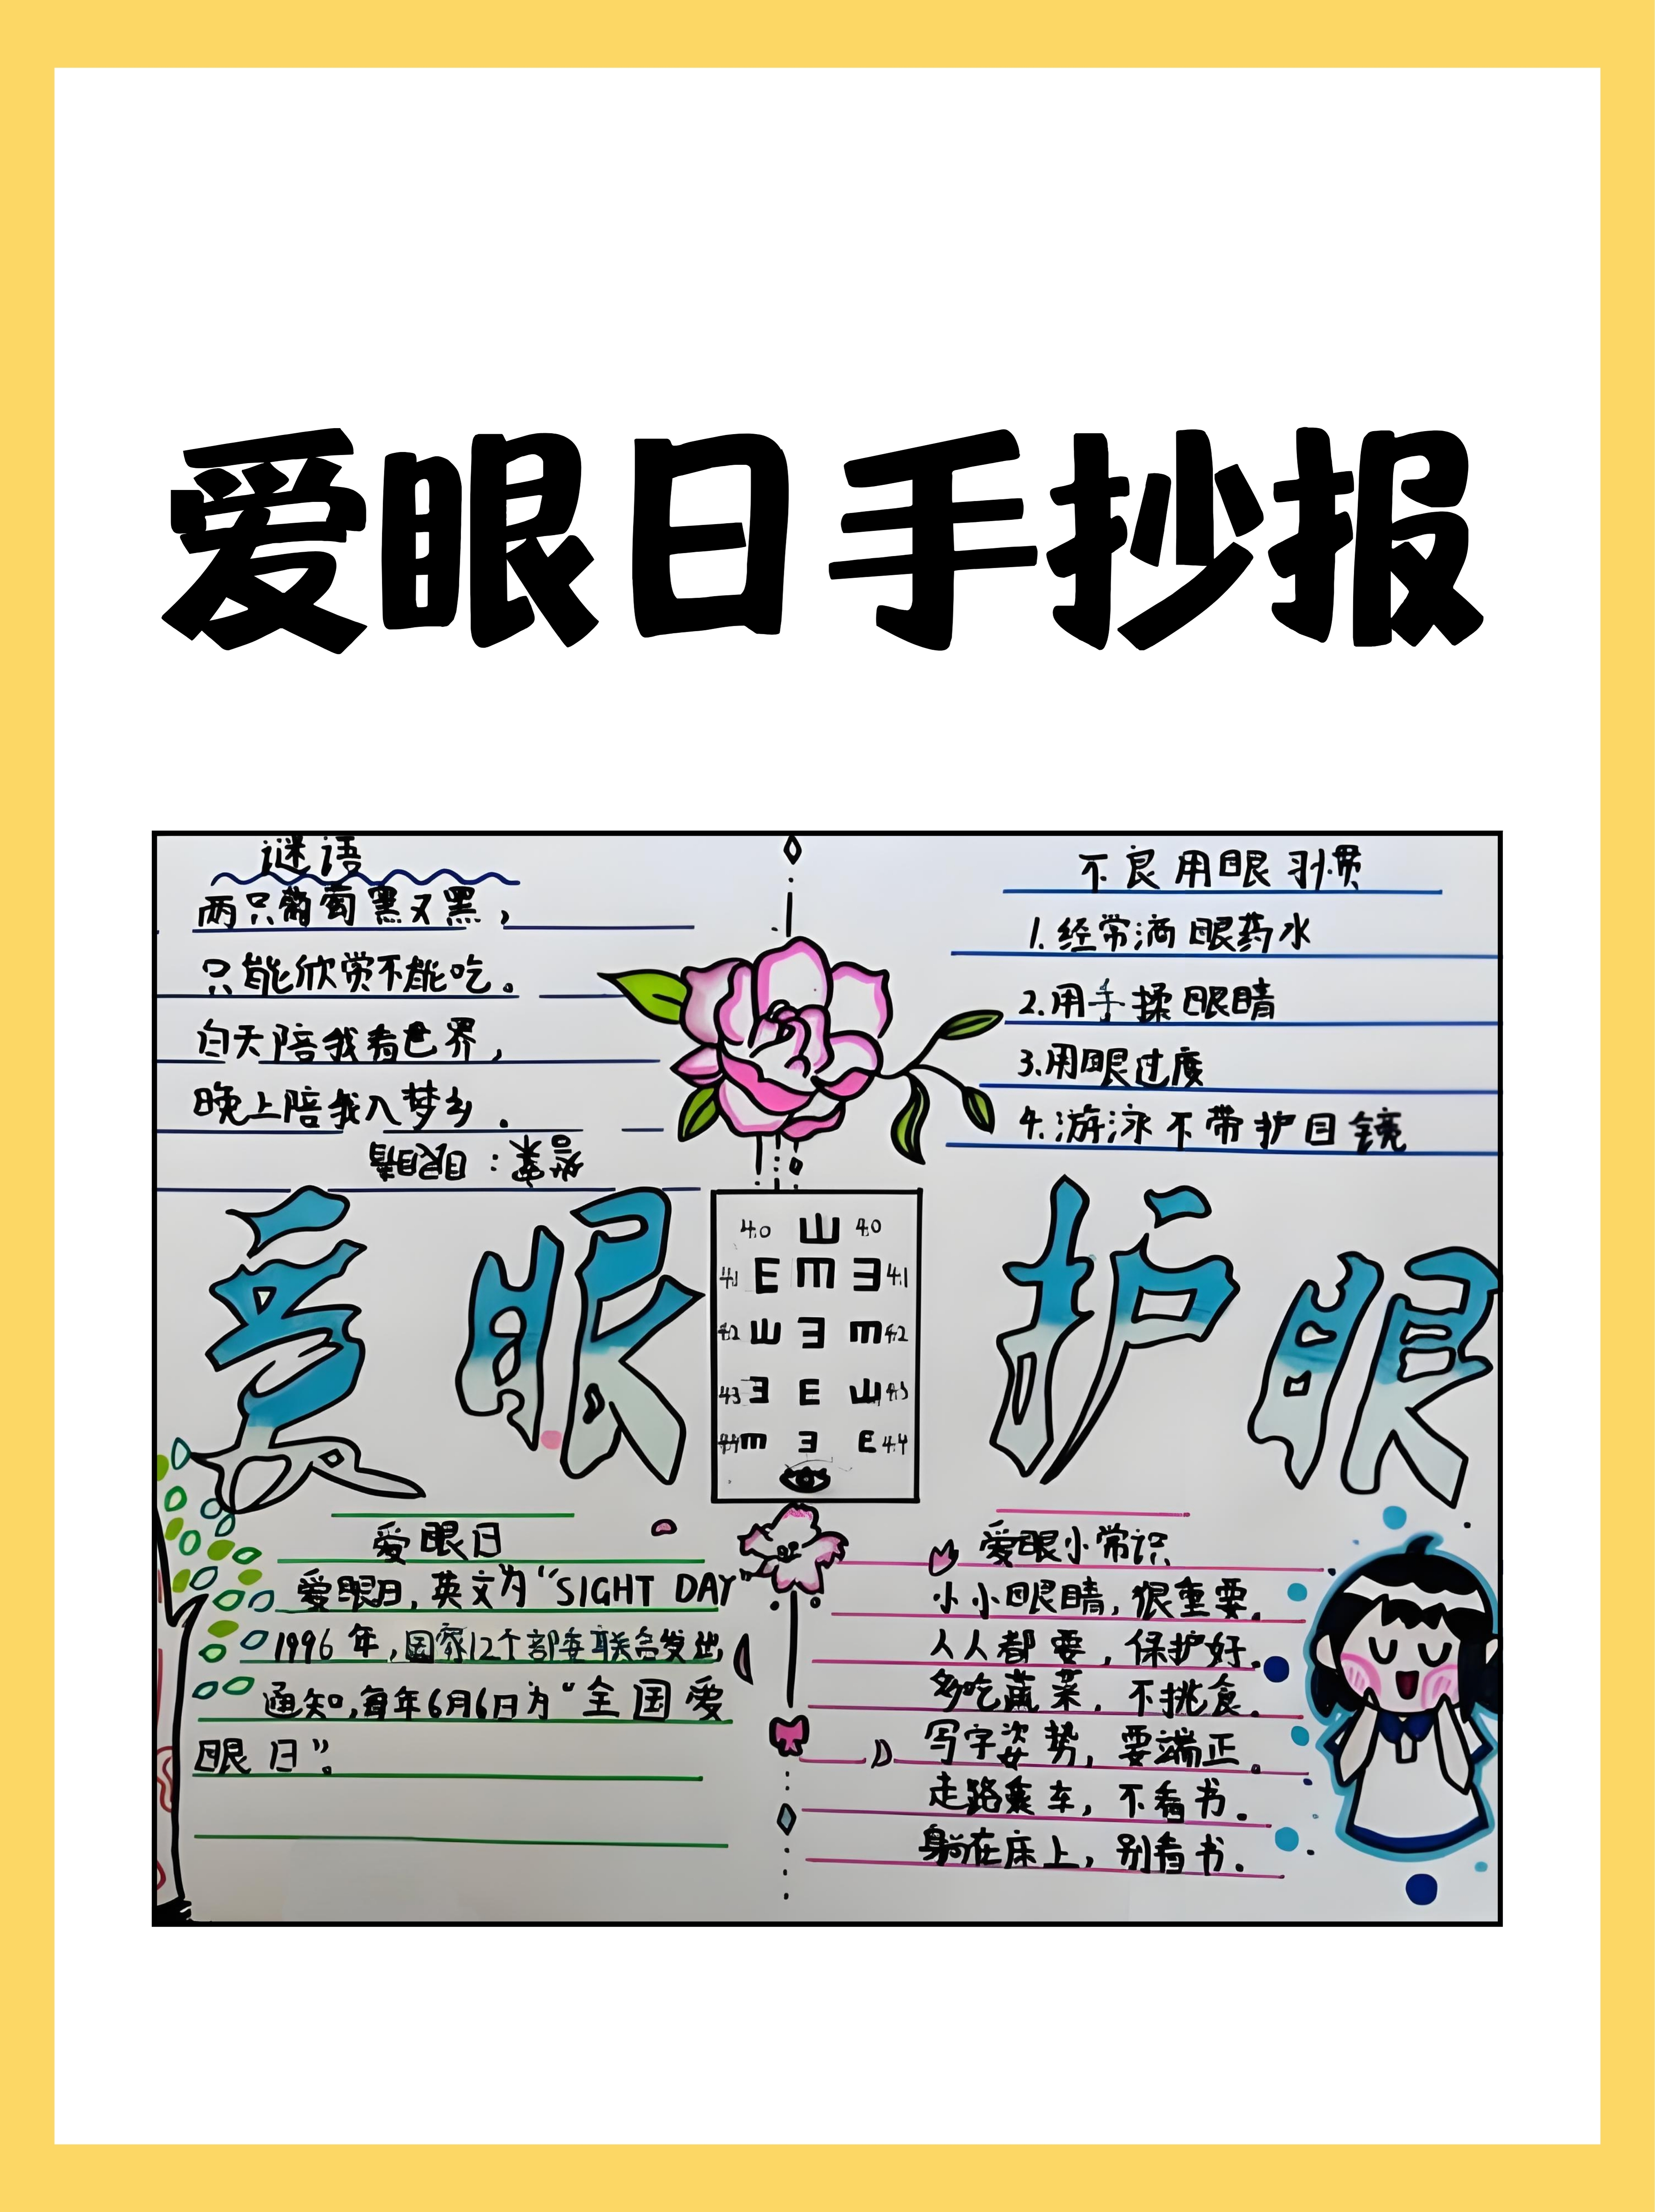 爱眼日手抄报
谜语
两只葡萄黑又黑，
只能欣赏不能吃。
白天陪我看世界，
晚上陪我入梦乡.
答案：眼睛
不良用眼习惯
1.经常滴眼药水
2.用手揉眼睛
3.用眼过度
4.游泳不带护目镜
爱眼
护眼
4.0 E 4.0
4.1 E E E 4.1
4.2 E E E 4.2
4.3 E E E 4.3
4.4 E E E 4.4
爱眼日
爱眼日，英文为“SIGHT DAY”
1996年，国家12个部委联合发出
通知，每年6月6日为“全国爱
眼日”。
爱眼小常识
小小眼睛，很重要.
人人都要，保护好.
多吃蔬菜，不挑食.
写字姿势，要端正。
走路乘车，不看书.
躺在床上，别看书.